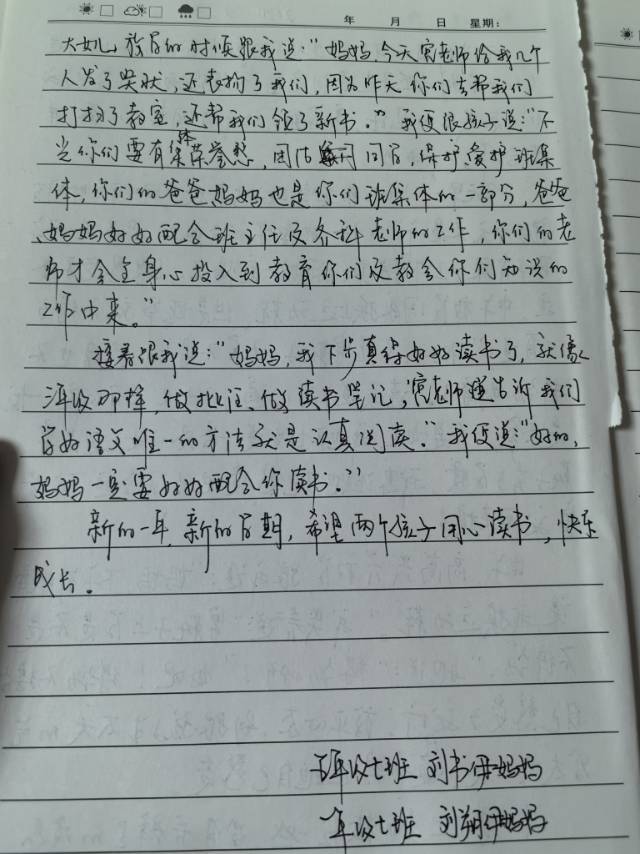 年 月 日 星期:
大女儿放学的时候跟我说:“妈妈,今天宽老师给我几个
人发了奖状,还表扬了我们,因为昨天你们去帮我们
打扫了教室,还帮我们领了新书。”我便跟孩子说:“不
光你们要有集体荣誉感,团结同学,保护、爱护班集
体,你们的爸爸妈妈也是你们班集体的一部分,爸爸
、妈妈好好配合班主任及各科老师的工作,你们的老
师才会全身心投入到教育你们及教会你们知识的
工作中来。”
接着跟我说:“妈妈,我下步真得好好读书了,就像
那样,做批注、做读书笔记,老师告诉我们
学好语文唯一的方法就是认真阅读。”我便说:“好的,
妈妈一定要好好配合你读书。”
新的一年,新的学期,希望两个孩子用心读书,快乐
成长。
五年级七班 刘书伊妈妈
一年级七班 刘朔伊妈妈